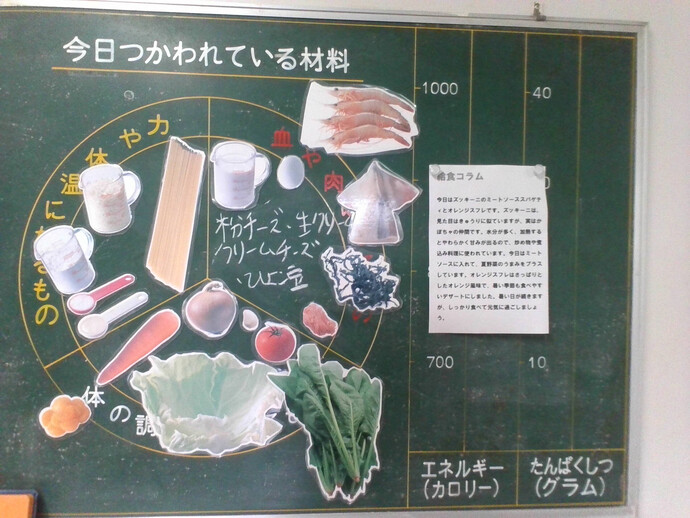 今日つかわれている材料
力や体温になるもの
血や肉
体の調
粉チーズ・生クリーム
クリームチーズ
・ひよこ豆
1000
700
40
10
エネルギー
(カロリー)
たんぱくしつ
(グラム)
給食コラム
今日はズッキーニのミートソーススパゲティ
とオレンジスフレです。ズッキーニは、
見た目はきゅうりに似ていますが、実はか
ぼちゃの仲間です。水分が多く、加熱する
とやわらかく甘みが出るので、炒め物や煮
込み料理に使われています。今日はミート
ソースに入れて、夏野菜のうまみをプラス
しています。オレンジスフレはさっぱりと
したオレンジ風味で、暑い季節も食べやす
いデザートにしました。暑い日が続きます
が、しっかり食べて元気に過ごしましょ
う。